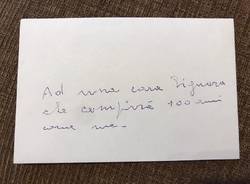 Ad una cara Signora
che compirà 100 anni
come me.